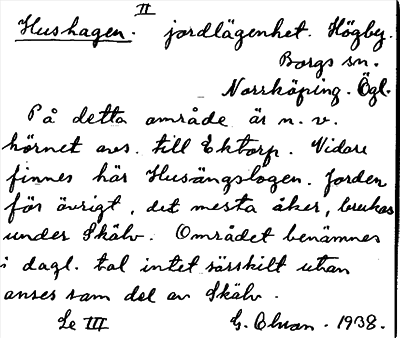 II
Hushagen. jordlägenhet. Högby.
Borgs sn.
Norrköping. Ögl.
På detta område är n. v.
hörnet avs. till Ektorp. Vidare
finnes här Husängslogen. Jorden
för övrigt, det mesta åker, brukas
under Skälv. Området benämnes
i dagl. tal intet särskilt utan
anses som del av Skälv.
Se III G. Olson. 1938.